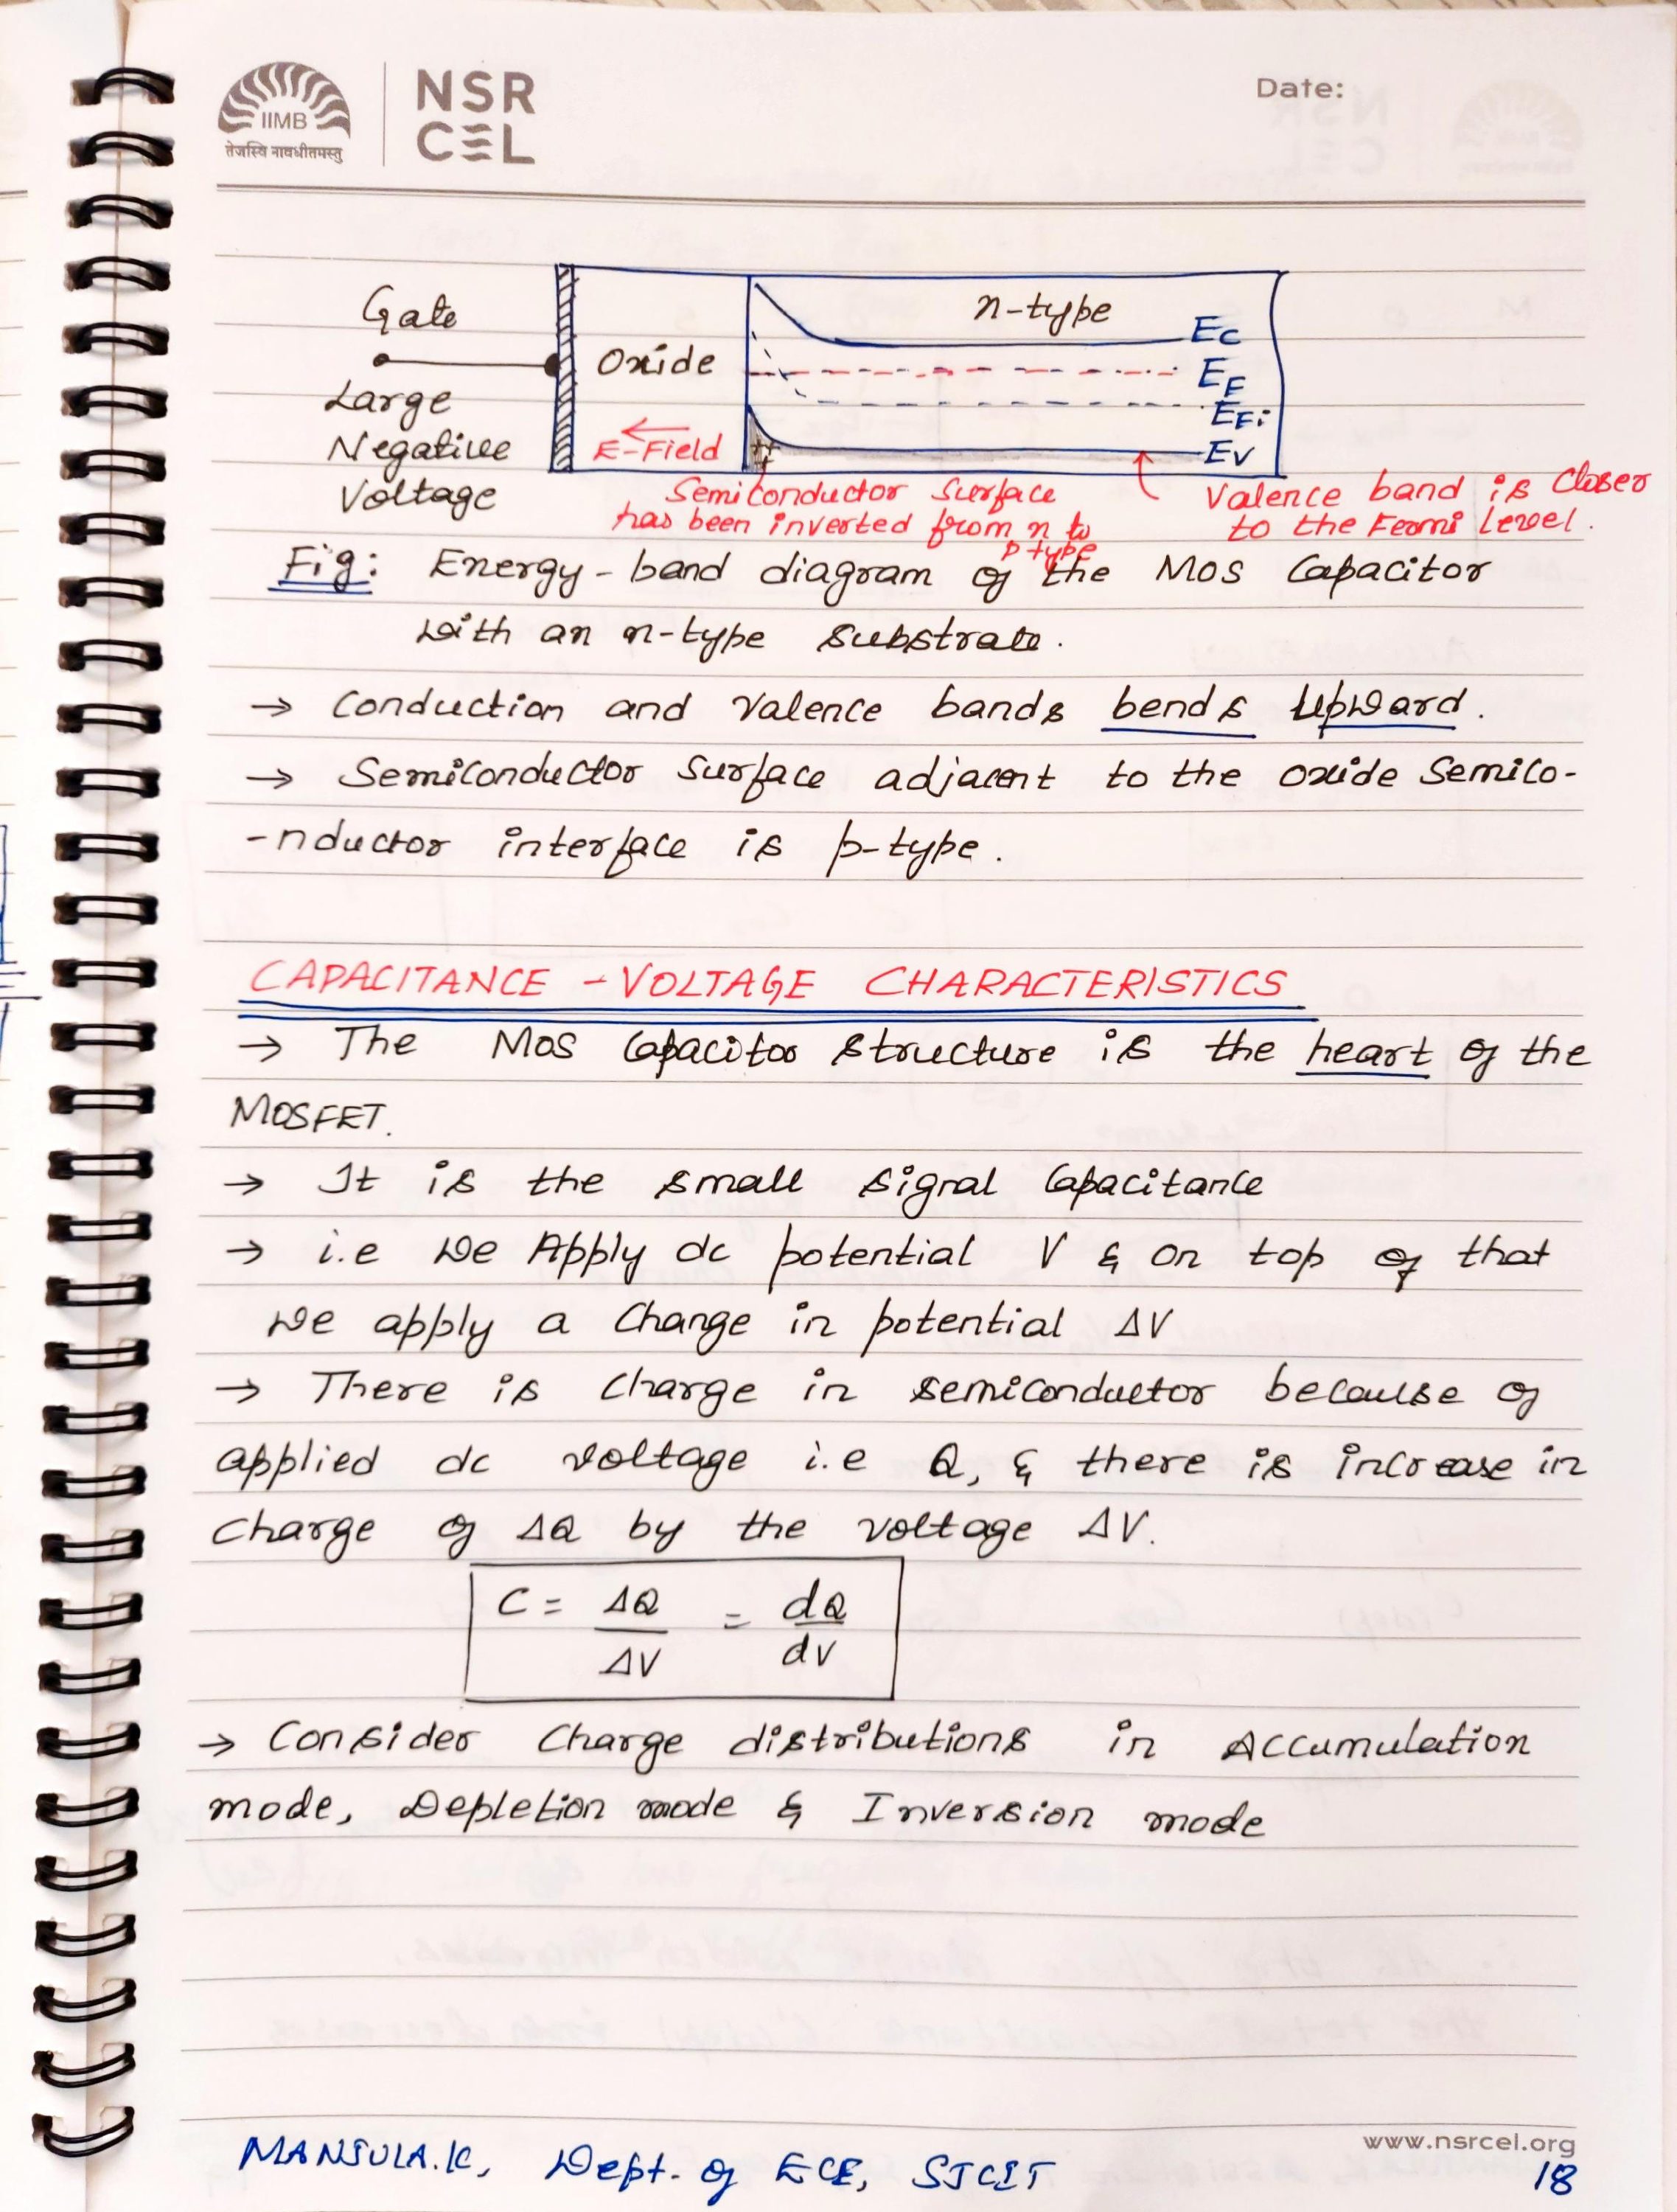 IIMB
तेजस्वि नावधीतमस्तु
NSR
CEL
Date:
Gate
Large
Negative
Voltage
Oxide
E-Field
n-type
Ec
EF
EFi
Ev
++
Semiconductor Surface
has been inverted from n to
p type
Valence band is Closer
to the Fermi Level.
Fig: Energy-band diagram of the MOS Capacitor
with an n-type substrate.
→ Conduction and Valence bands bends Upward.
→ Semiconductor Surface adjacent to the oxide Semico-
-nductor interface is p-type.
CAPACITANCE - VOLTAGE CHARACTERISTICS
→ The MOS Capacitor structure is the heart of the
MOSFET.
→ It is the small signal Capacitance
→ i.e We Apply dc potential V & on top of that
we apply a Change in potential ΔV
→ There is Charge in semiconductor because of
applied dc voltage i.e Q, & there is increase in
Charge of ΔQ by the voltage ΔV.
C = ΔQ/ΔV = dQ/dV
→ Consider Charge distributions in Accumulation
mode, Depletion mode & Inversion mode
www.nsrcel.org
MANJULA.K, Dept. of ECE, SJCIT
18